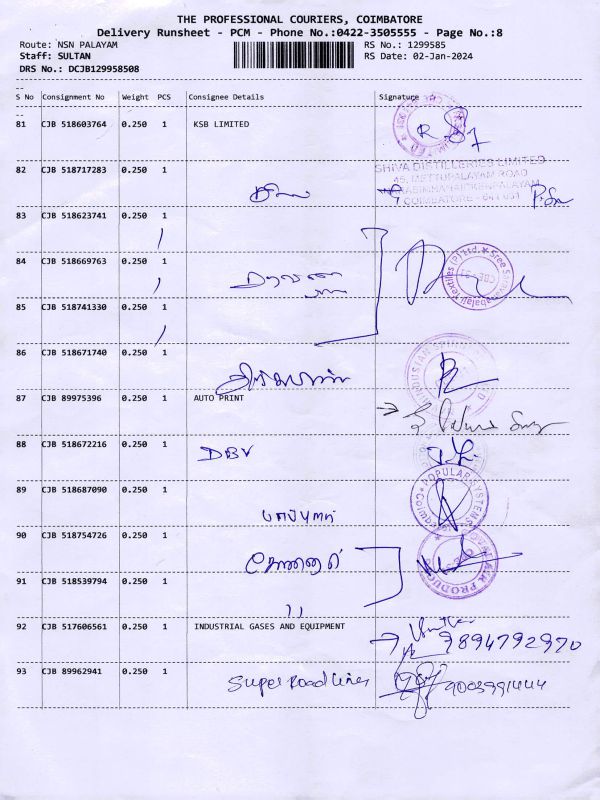 THE PROFESSIONAL COURIERS, COIMBATORE
Delivery Runsheet - PCM - Phone No.:0422-3505555 - Page No.:8
Route: NSN PALAYAM RS No.: 1299585
Staff: SULTAN RS Date: 02-Jan-2024
DRS No.: DCJB129958508
--
S No Consignment No Weight PCS Consignee Details Signature
--
81 CJB 518603764 0.250 1 KSB LIMITED
82 CJB 518717283 0.250 1
SHIVA DISTILLERIES LIMITED
45, METTUPALAYAM ROAD
COIMBATORE - 641 031
83 CJB 518623741 0.250 1
84 CJB 518669763 0.250 1
85 CJB 518741330 0.250 1
86 CJB 518671740 0.250 1
87 CJB 89975396 0.250 1 AUTO PRINT
88 CJB 518672216 0.250 1
DBV
89 CJB 518687090 0.250 1
POPULAR SYSTEMS
90 CJB 518754726 0.250 1
91 CJB 518539794 0.250 1
92 CJB 517606561 0.250 1 INDUSTRIAL GASES AND EQUIPMENT
9894792970
93 CJB 89962941 0.250 1
Super Road Lines 9003991444